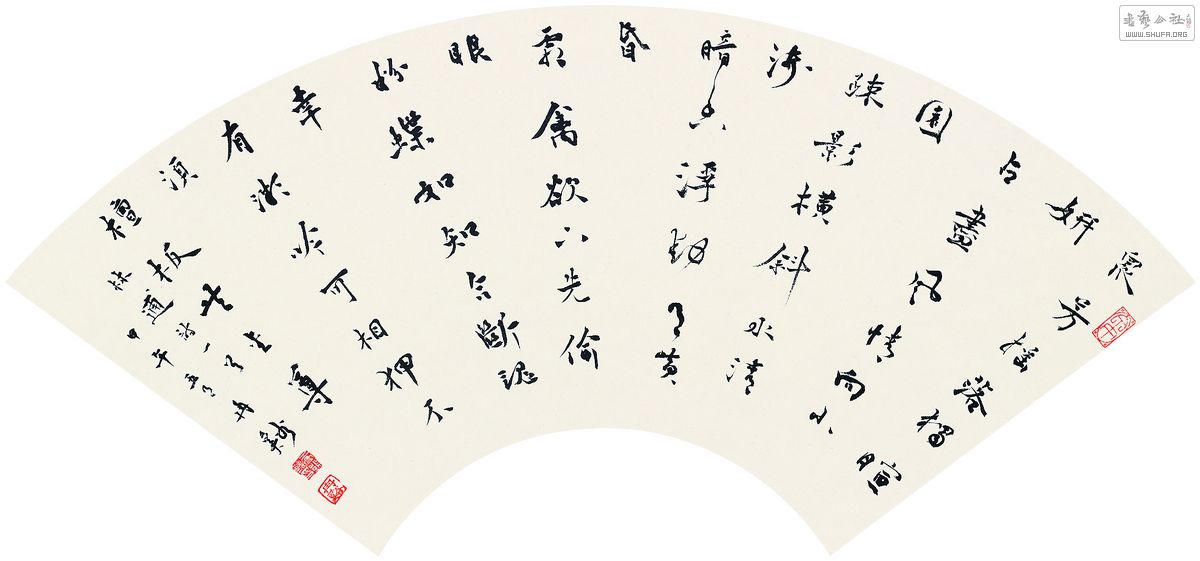 眾芳搖落獨暄
妍
占盡風情向小
園
疎影橫斜水清
淺
暗香浮動月黃
昏
霜禽欲下先偷
眼
粉蝶如知合斷魂
幸
有微吟可相狎不
須
檀板共金尊
林逋詩一首
甲午
書藝公社
WWW.SHUFA.ORG